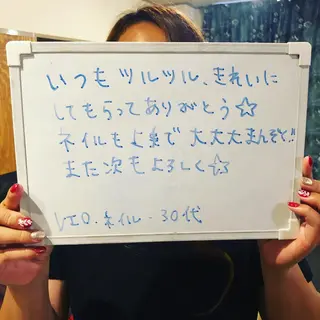 いつもツルツル、きれいに
してもらってありがとう☆
ネイルもよきで大大大まんぞく!!
また次もよろしく☆
VIO.ネイル・30代